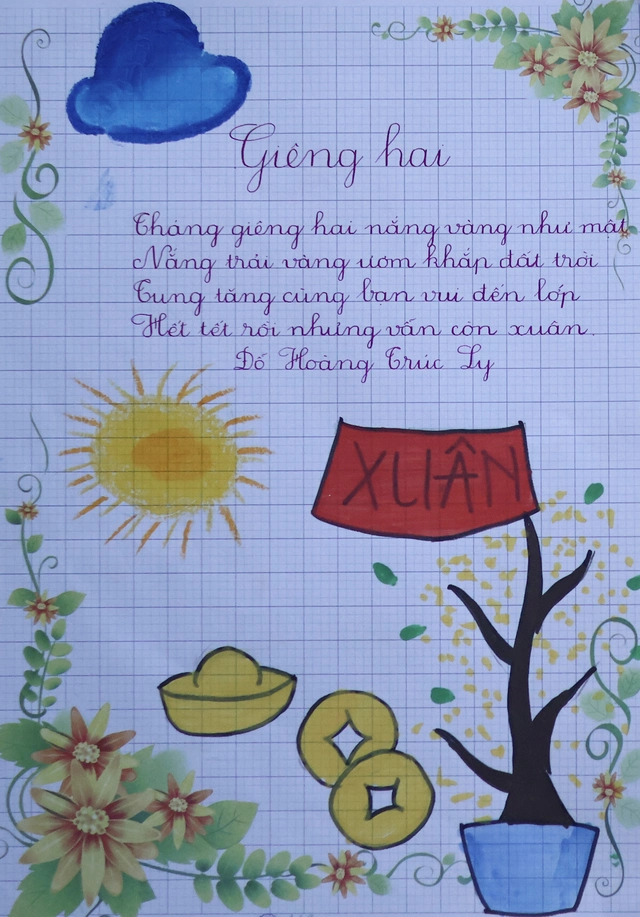 Giêng hai
Tháng giêng hai nắng vàng như mật
Nắng trải vàng ươm khắp đất trời
Tung tăng cùng bạn vui đến lớp
Hết tết rồi nhưng vẫn còn xuân.
Đỗ Hoàng Trúc Ly
XUÂN